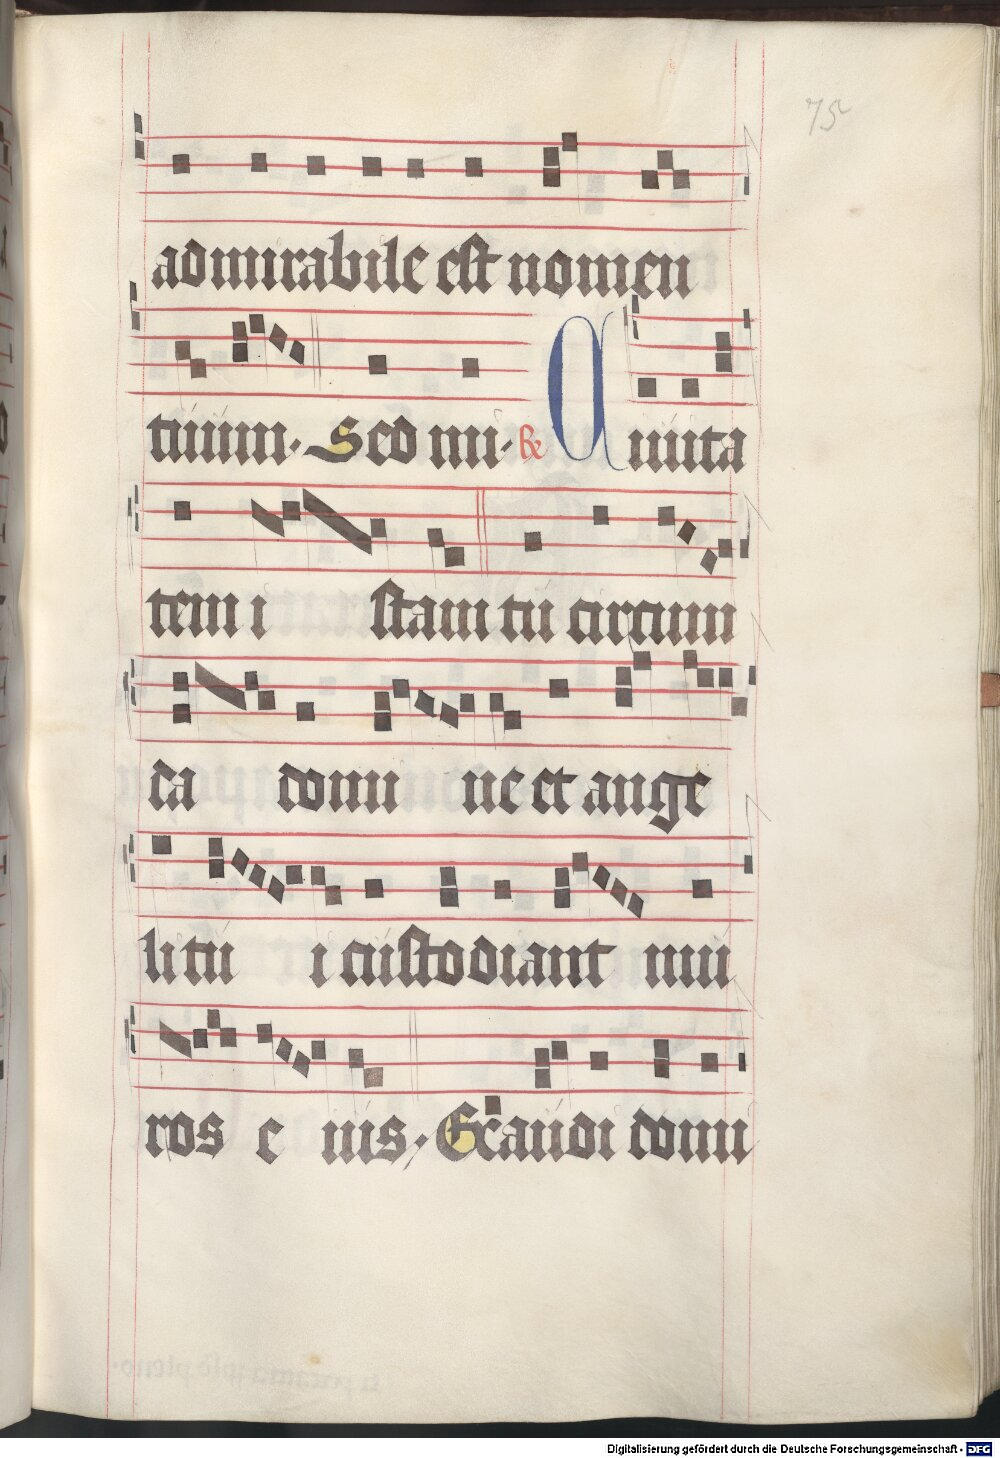 75
admirabile est nomen
tuum. Sed nu. R Ciuita
tem i stam tu circum
da domi ne et ange
li tu i custodiant mu
ros e ius. Exaudi domi
Digitalisierung gefördert durch die Deutsche Forschungsgemeinschaft - DFG